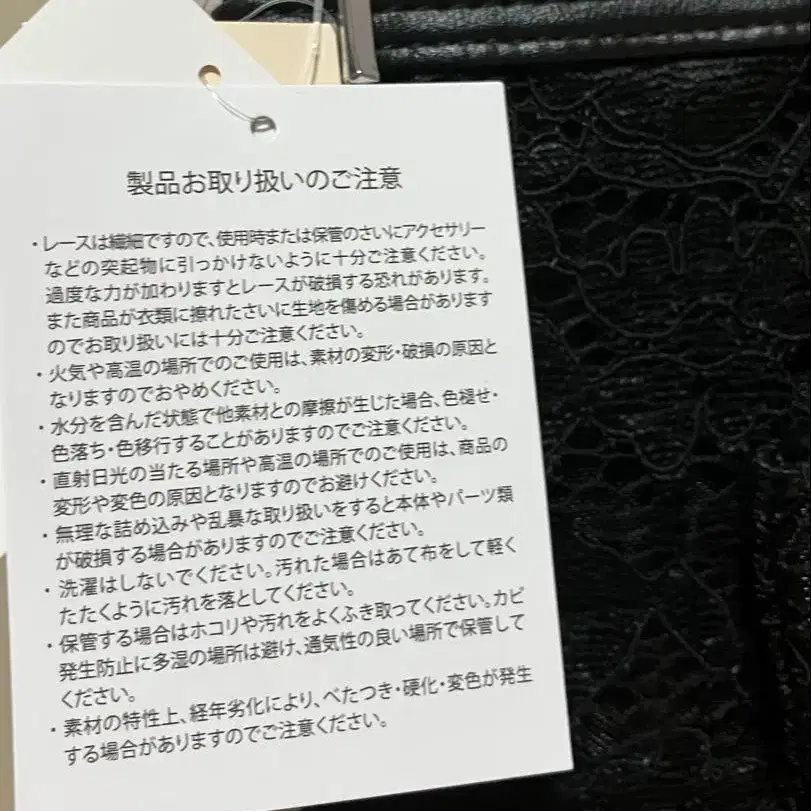 製品お取り扱いのご注意
・レースは繊細ですので、使用時または保管のさいにアクセサリー
などの突起物に引っかけないように十分ご注意ください。
過度な力が加わりますとレースが破損する恐れがあります。
また商品が衣類に擦れたさいに生地を傷める場合があります
のでお取り扱いには十分ご注意ください。
・火気や高温の場所でのご使用は、素材の変形・破損の原因と
なりますのでおやめください。
・水分を含んだ状態で他素材との摩擦が生じた場合、色褪せ・
色落ち・色移行することがありますのでご注意ください。
・直射日光の当たる場所や高温の場所でのご使用は、商品の
変形や変色の原因となりますのでお避けください。
・無理な詰め込みや乱暴な取り扱いをすると本体やパーツ類
が破損する場合がありますのでご注意ください。
・洗濯はしないでください。汚れた場合はあて布をして軽く
たたくように汚れを落としてください。
・保管する場合はホコリや汚れをよくふき取ってください。カビ
発生防止に多湿の場所は避け、通気性の良い場所で保管して
ください。
・素材の特性上、経年劣化により、べたつき・硬化・変色が発生
する場合がありますのでご注意ください。